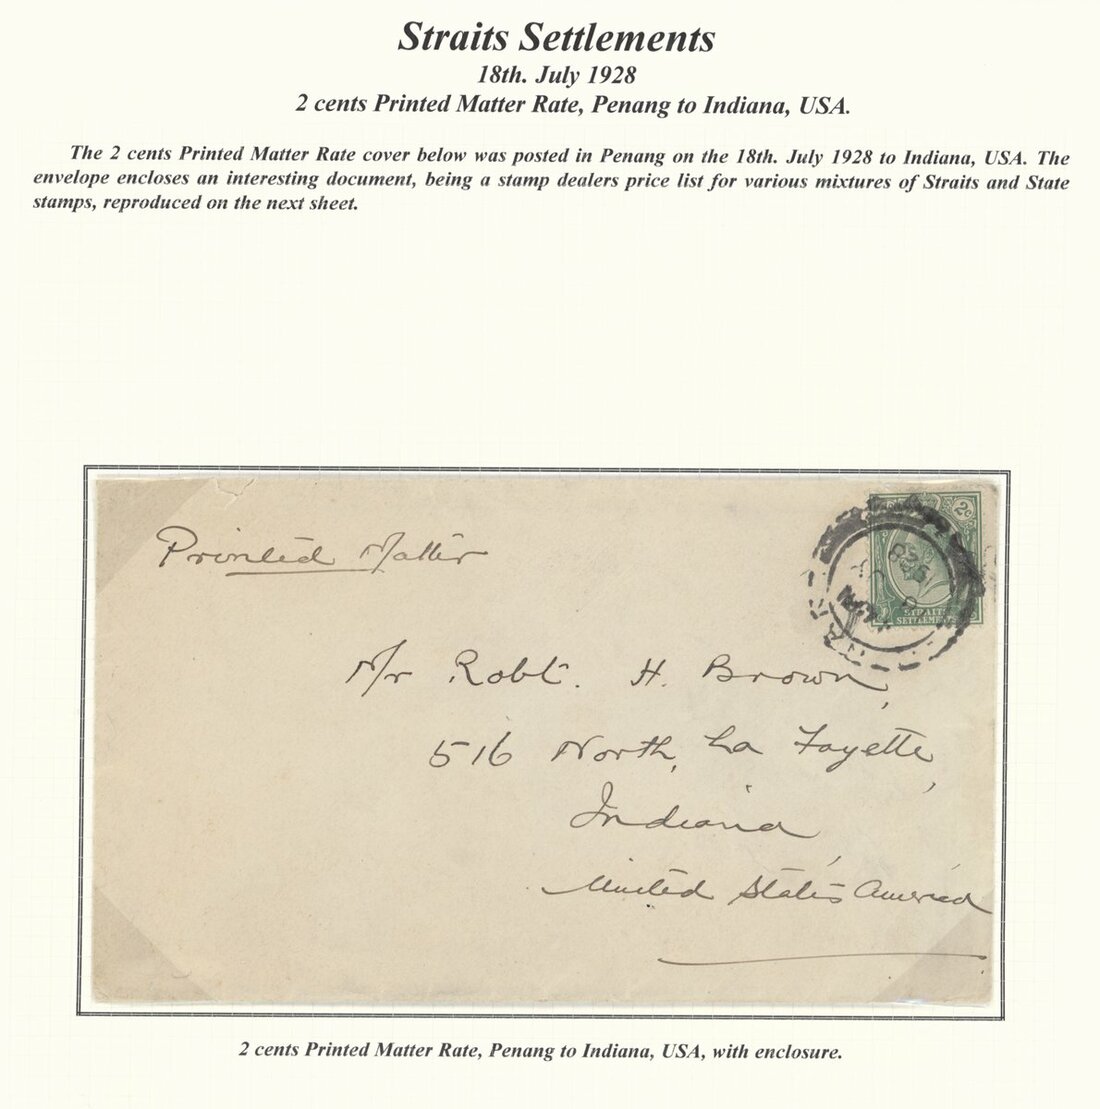 Straits Settlements
18th. July 1928
2 cents Printed Matter Rate, Penang to Indiana, USA.
The 2 cents Printed Matter Rate cover below was posted in Penang on the 18th. July 1928 to Indiana, USA. The
envelope encloses an interesting document, being a stamp dealers price list for various mixtures of Straits and State
stamps, reproduced on the next sheet.
2c
STRAITS
SETTLEMENTS
Printed Matter
Mr Robt. H. Brown,
516 North, La Fayette,
Indiana,
United States America
2 cents Printed Matter Rate, Penang to Indiana, USA, with enclosure.